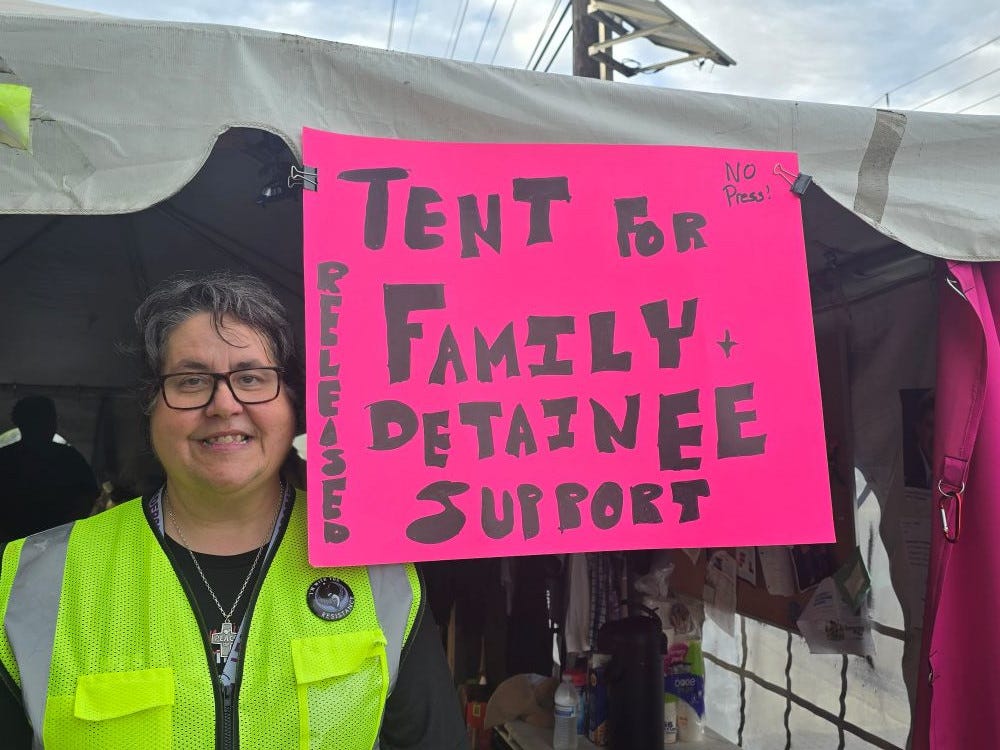 TENT FOR
NO
Press!
RELEASED
FAMILY +
DETAINEE
SUPPORT
PEACE
RESISTANCE